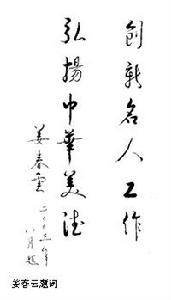 創新名人工作
弘揚中華美德
姜春雲
二〇〇三年
八月题
姜春云题词